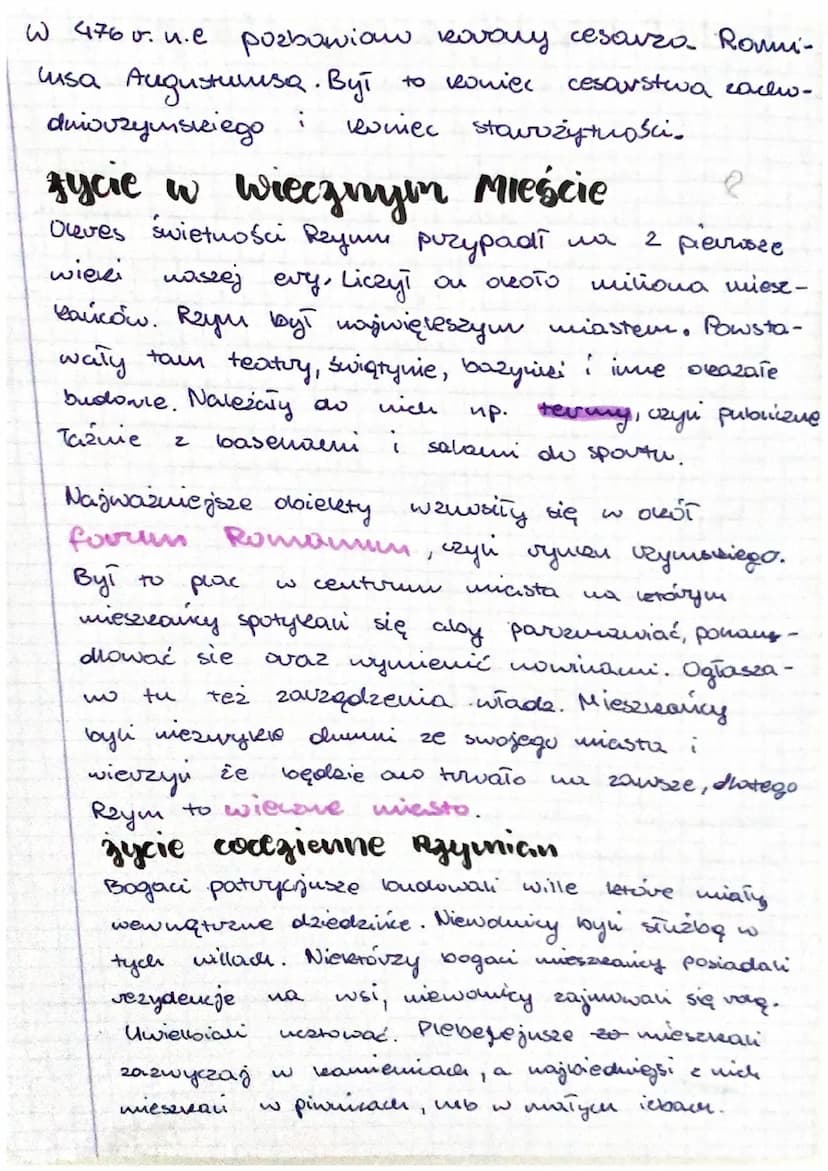 W 476 r. n.e pozbawiono korony cesarza Romu-
lusa Augustulusa. Był to koniec cesarstwa zacho-
dniorzymskiego i koniec starożytności.
życie w wiecznym Mieście
Okres świetności Rzymu przypadł na 2 pierwsze
wieki naszej ery. Liczył on około miliona miesz-
kańców. Rzym był największym miastem. Powsta-
wały tam teatry, świątynie, bazyliki i inne okazałe
budowle. Należały do nich np. termy, czyli publiczne
łaźnie z basenami i salami do sportu.
Najważniejsze obiekty wznosiły się w okół
forum Romanum, czyli rynku rzymskiego.
Był to plac w centrum miasta na którym
mieszkańcy spotykali się aby porozmawiać, pohan-
dlować sie oraz wymienić nowinami. Ogłasza-
no tu też zarządzenia władz. Mieszkańcy
byli niezwykle dumni ze swojego miasta i
wierzyli że będzie ono trwało na zawsze, dlatego
Rzym to wieczne miasto.
życie codzienne Rzymian
Bogaci patrycjusze budowali wille które miały
wewnątrzne dziedzińce. Niewolnicy byli służbą w
tych willach. Niektórzy bogaci mieszkańcy posiadali
rezydencje na wsi, niewolnicy zajmowali się rolą.
Uwielbiali ucztować. Plebejusze mieszkali
zazwyczaj w kamienicach, a najbiedniejsi z nich
mieszkali w piwnicach, lub w małych izbach.